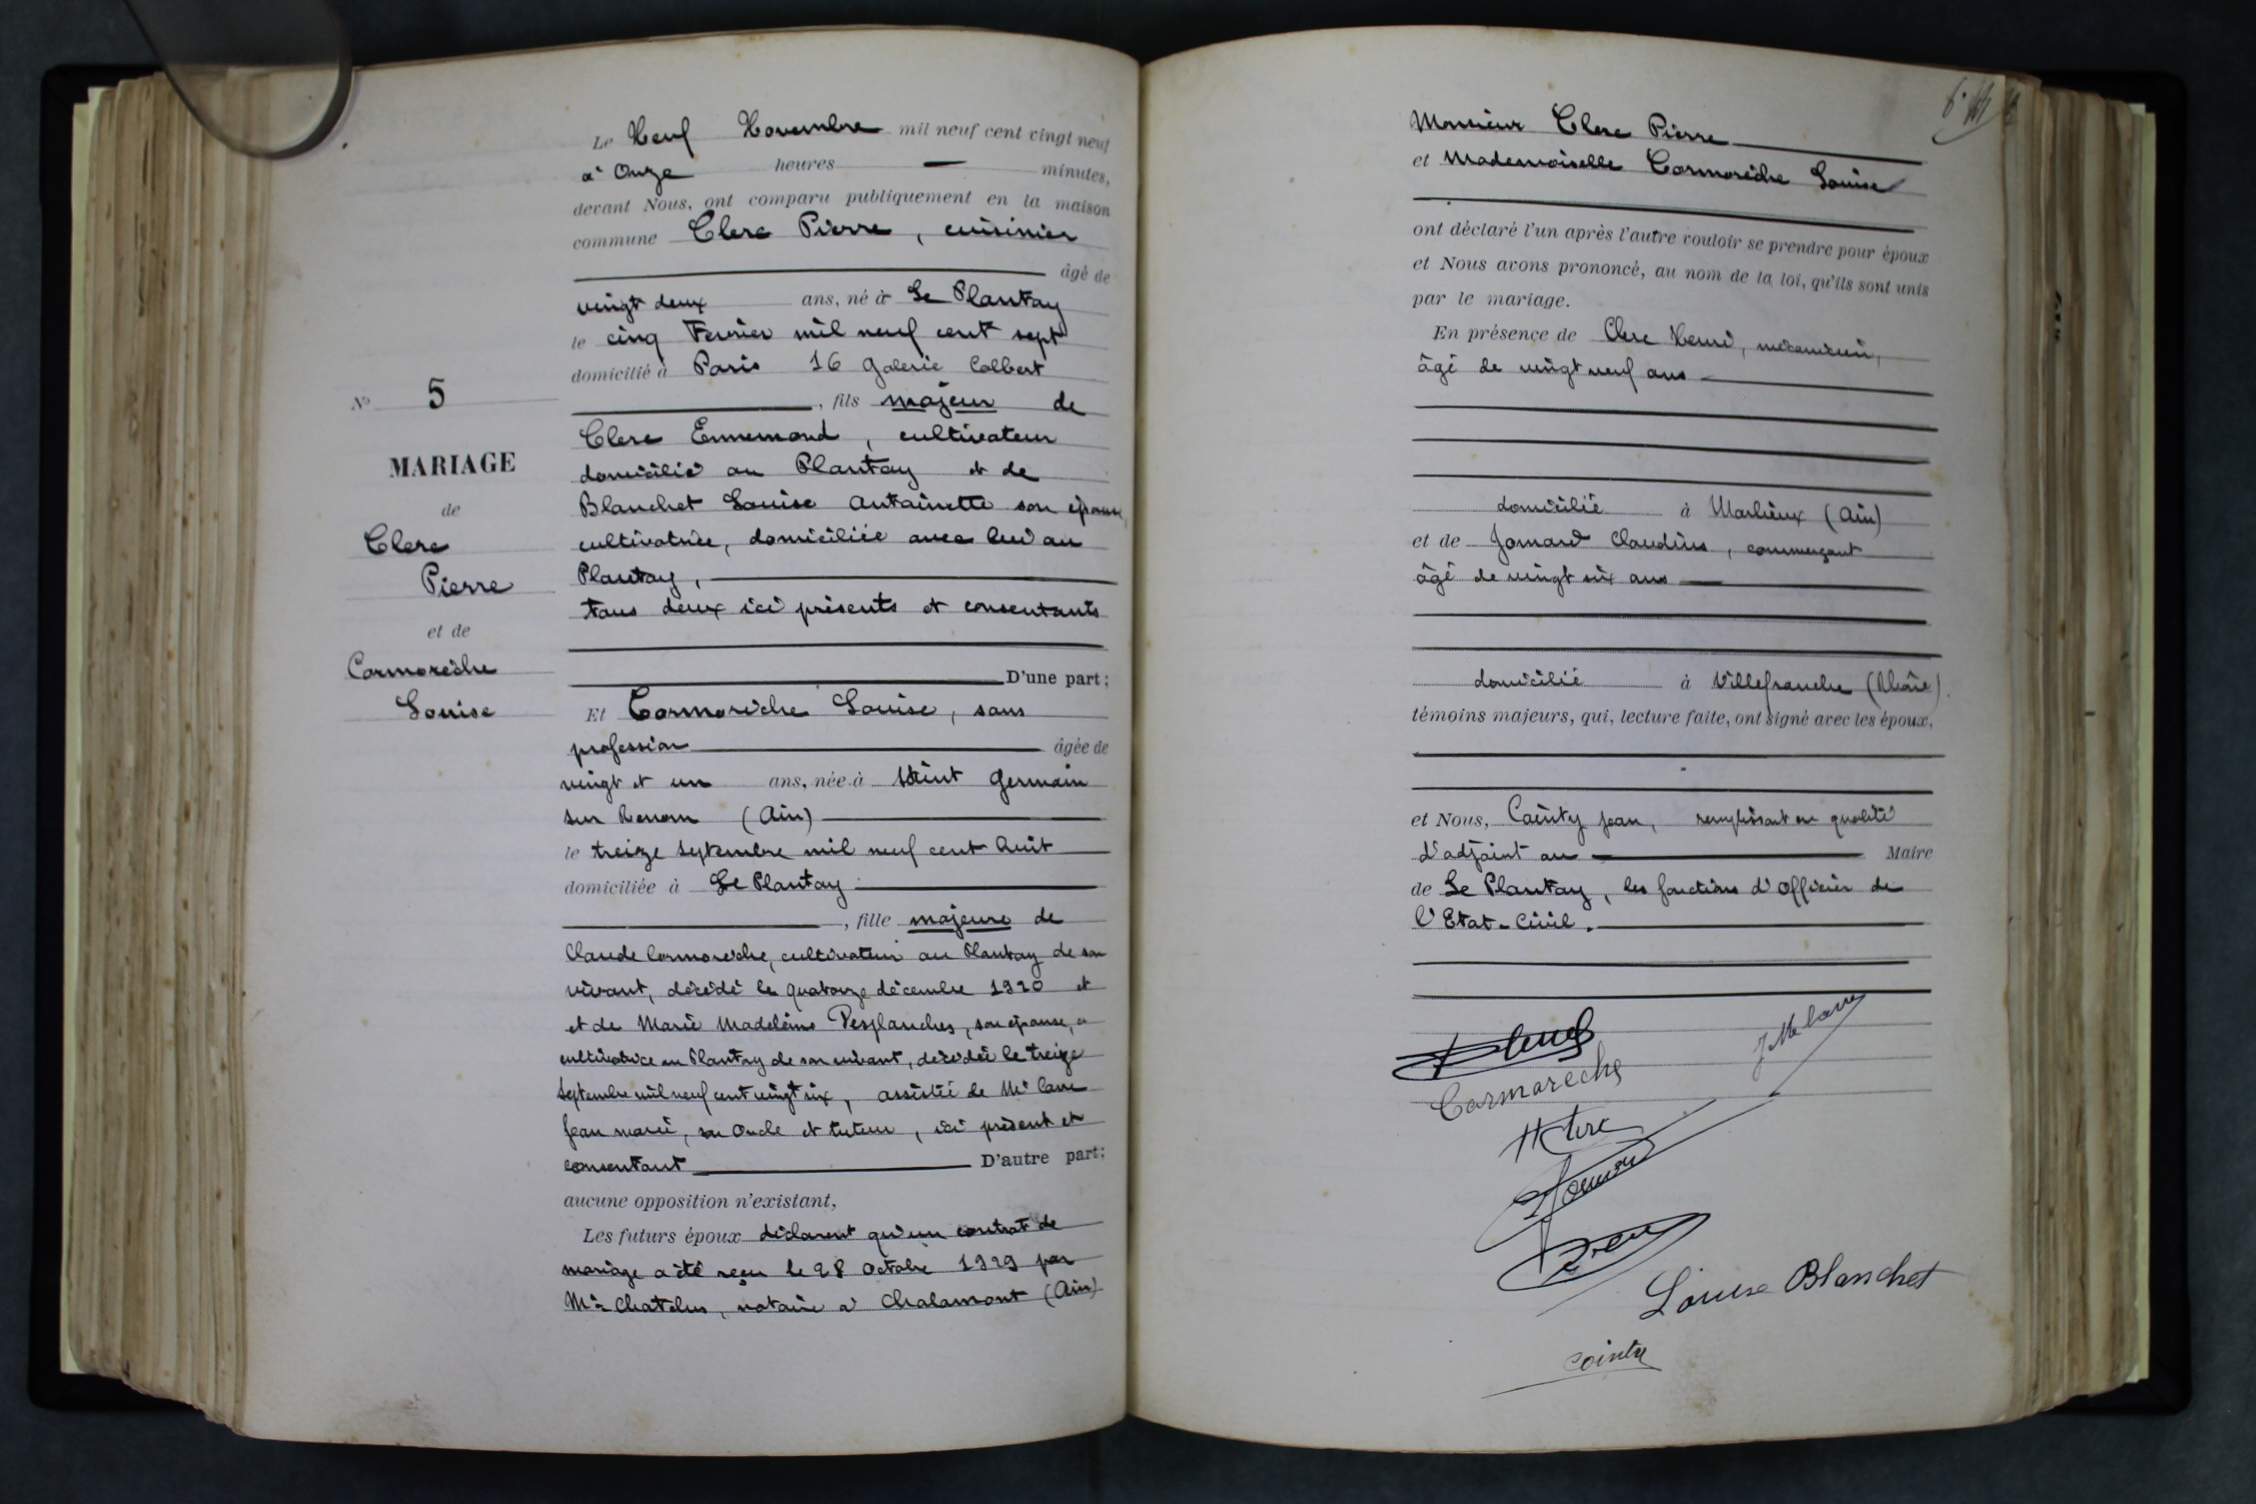 Le Neuf Novembre mil neuf cent vingt neuf
à Onze heures — minutes,
devant Nous, ont comparu publiquement en la maison
commune Clerc Pierre, cuisinier
âgé de
vingt deux ans, né à Le Plantay
le cinq Fevrier mil neuf cent sept
domicilié à Paris 16 Galerie Colbert
, fils majeur de
Clerc Ennemond, cultivateur
domicilié au Plantay et de
Blanchet Louise Antoinette son épouse,
cultivatrice, domiciliée avec lui au
Plantay,
tous deux ici présents et consentants
D'une part;
Et Cormorèche Louise, sans
profession âgée de
vingt et un ans, née à Saint Germain
sur Renom (Ain)
le treize Septembre mil neuf cent huit
domiciliée à Le Plantay
, fille majeure de
Claude Cormorèche, cultivateur au Plantay de son
vivant, décédé le quatorze décembre 1920 et
et de Marie Madeleine Desplanches, son épouse,
cultivatrice au Plantay de son vivant, décédée le treize
Septembre mil neuf cent vingt six, assistée de Mr
Jean Marie, son Oncle et tuteur, ici présent et
consentant D'autre part;
aucune opposition n'existant,
Les futurs époux déclarent qu'un contrat de
mariage a été reçu le 28 Octobre 1929 par
Me Chatelus, notaire à Chalamont (Ain)
No 5
MARIAGE
de
Clerc
Pierre
et de
Cormorèche
Louise
Monsieur Clerc Pierre
et Mademoiselle Cormorèche Louise
ont déclaré l'un après l'autre vouloir se prendre pour époux
et Nous avons prononcé, au nom de la loi, qu'ils sont unis
par le mariage.
En présence de Clerc Henri, mécanicien,
âgé de vingt neuf ans
domicilié à Marlieux (Ain)
et de Jomard Claudius, commerçant
âgé de vingt six ans
domicilié à Villefranche (Rhône)
témoins majeurs, qui, lecture faite, ont signé avec les époux,
et Nous, Cointy Jean, remplissant en qualité
d'adjoint au Maire
de Le Plantay, les fonctions d'Officier de
l'Etat-Civil.
Clerc
Cormareche
H Clerc
Louise Blanchet
Cointy